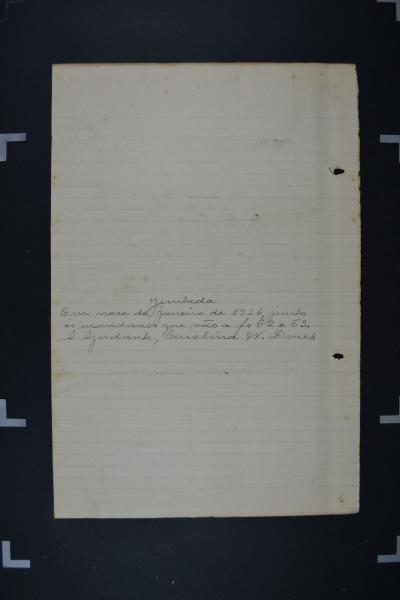 Juntada
Em nove de Janeiro de 1926, junto
os mandados que vão a fs 62 e 63.
O Ajudante, Carolina W.